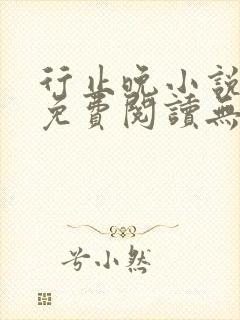 行止晚小說
免費閱讀無
兮小然